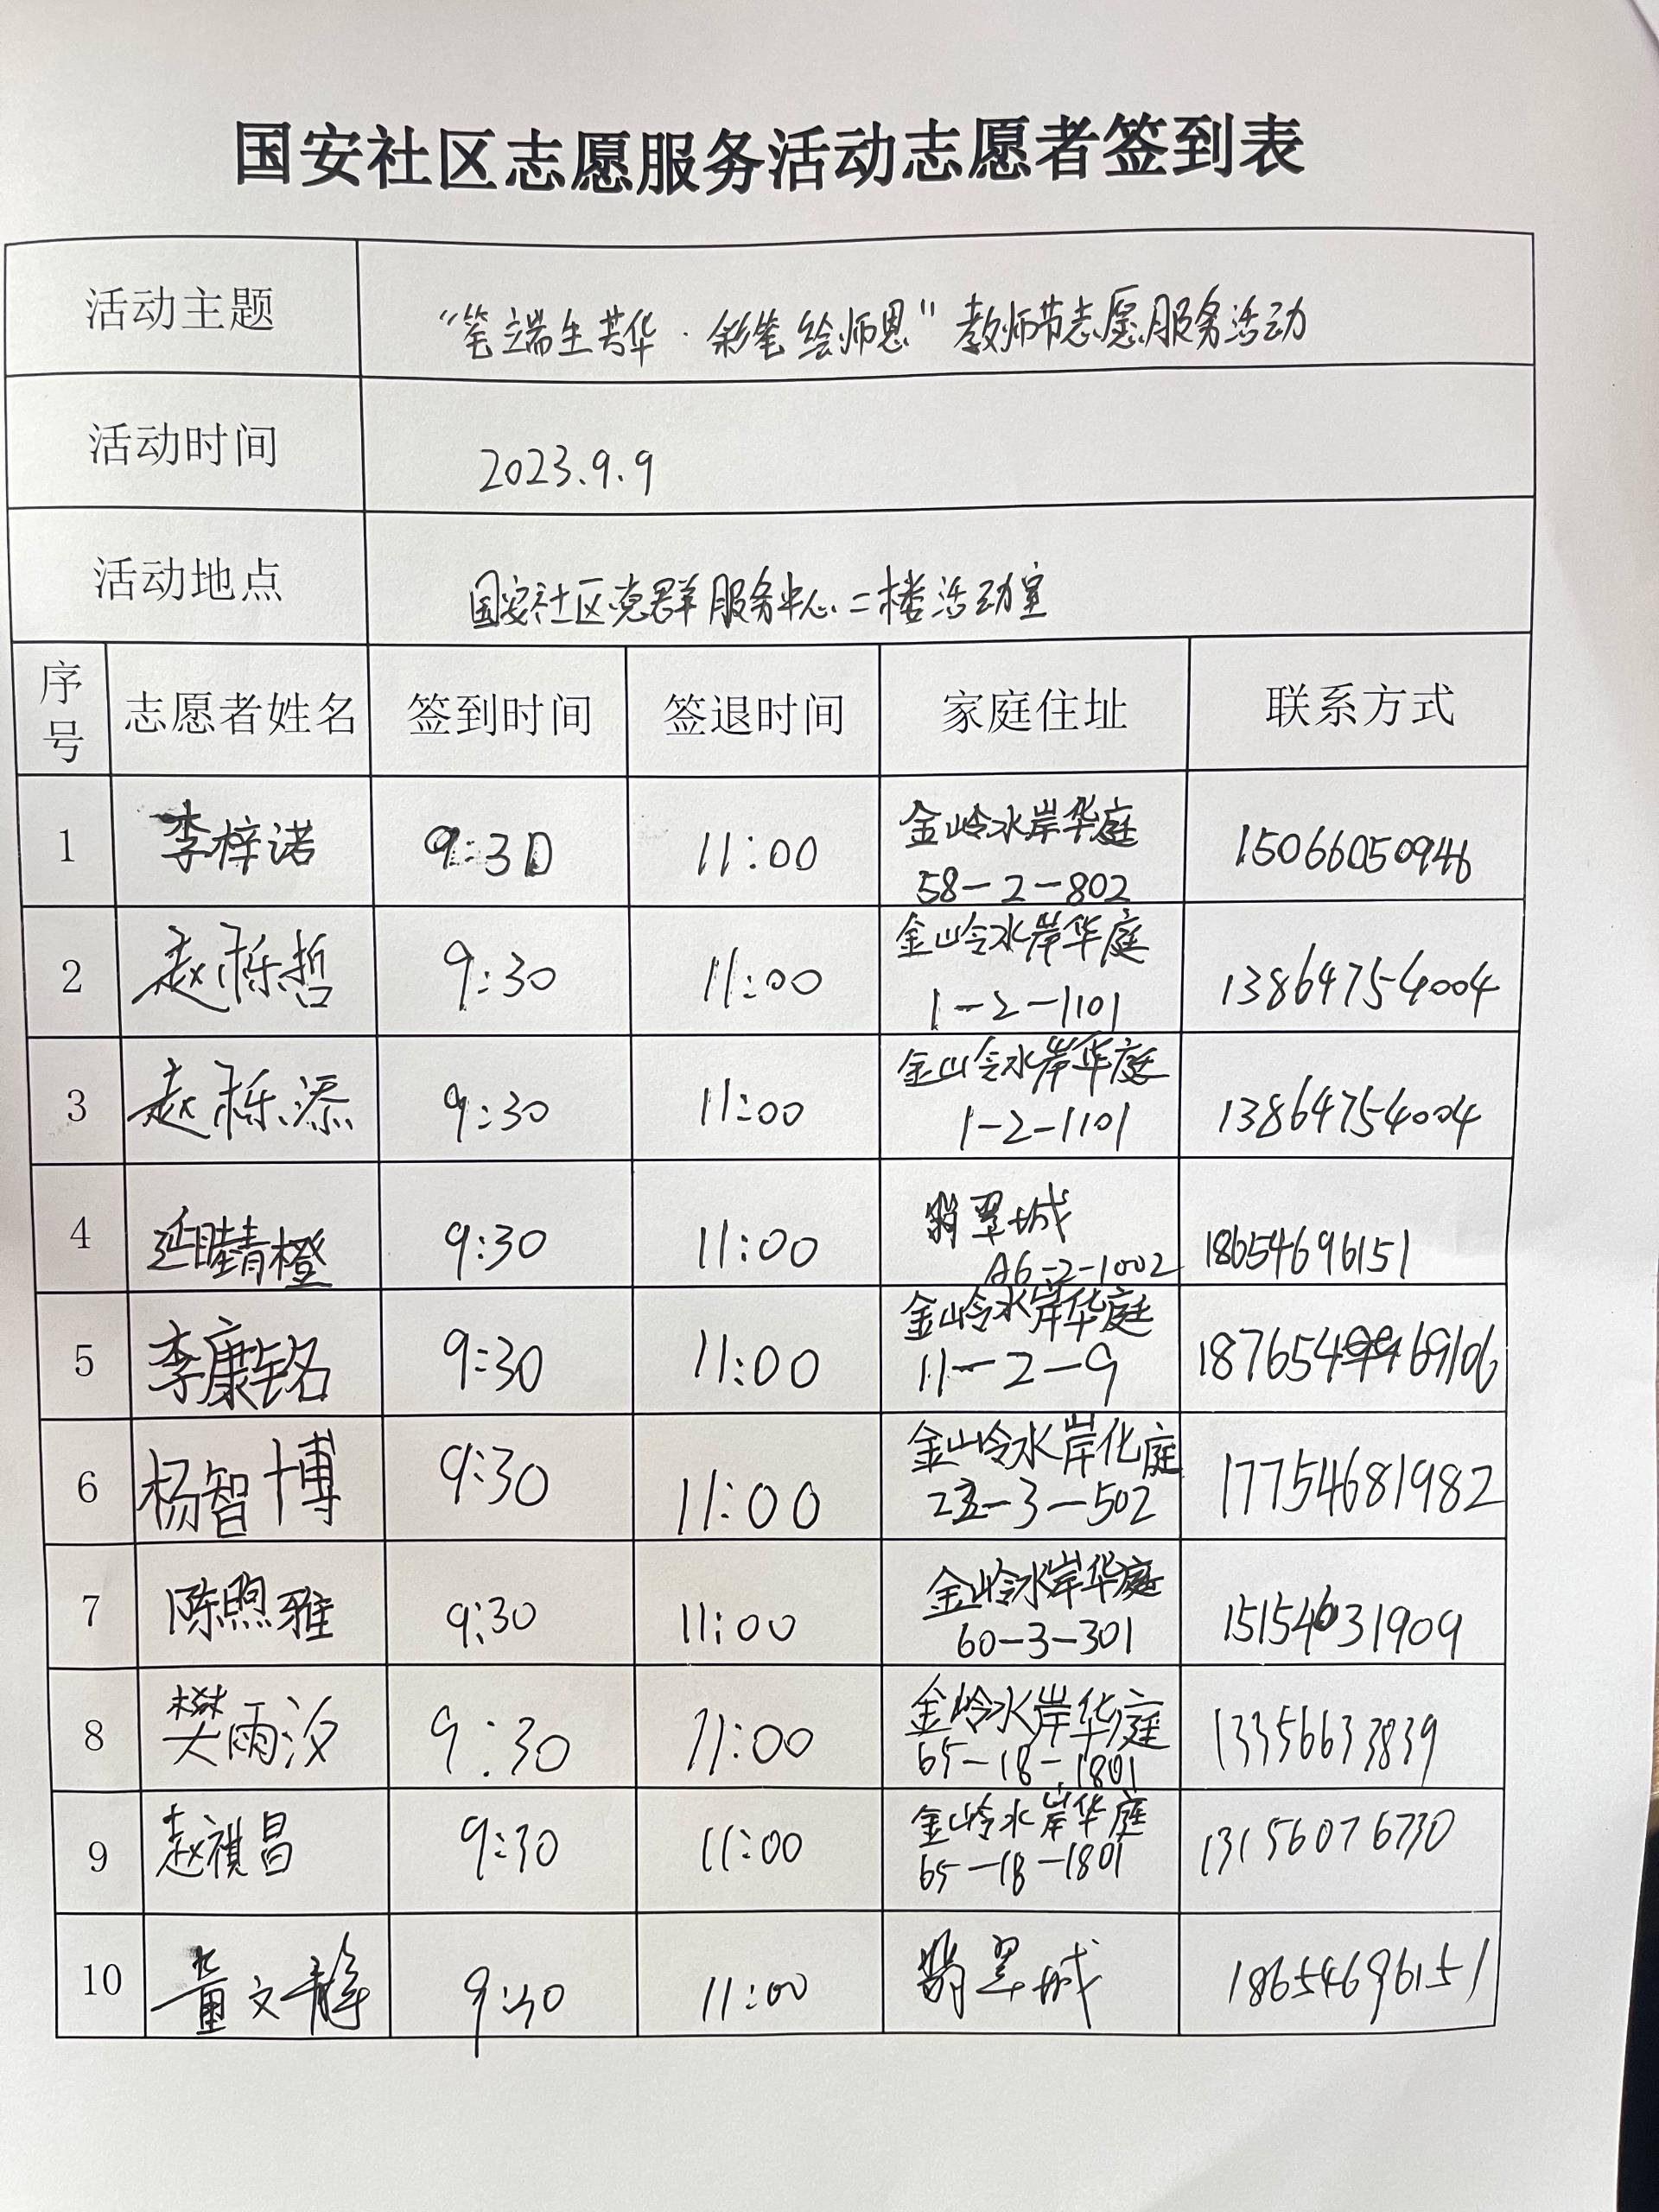 国安社区志愿服务活动志愿者签到表
活动主题 “笔端生芳华·彩笔绘师恩”教师节志愿服务活动
活动时间 2023.9.9
活动地点 国安社区党群服务中心二楼活动室
序号 志愿者姓名 签到时间 签退时间 家庭住址 联系方式
1 李梓诺 9:30 11:00 金岭水岸华庭 15066050946
58-2-802
2 赵栎哲 9:30 11:00 金岭水岸华庭 13864754004
1-2-1101
3 赵栎添 9:30 11:00 金岭水岸华庭 13864754004
1-2-1101
4 延睛橙 9:30 11:00 翡翠城 18654696151
A6-2-1002
5 李康铭 9:30 11:00 金岭水岸华庭
11-2-9
6 杨智博 9:30 11:00 金岭水岸化庭 17754681982
3-502
7 陈煦雅 9:30 11:00 金岭水岸华庭 15154631909
60-3-301
8 樊雨汐 9:30 11:00 金岭水岸华庭 13356633839
65-18-1801
9 赵祺昌 9:30 11:00 金岭水岸华庭 13156076730
65-18-1801
10 董文静 9:30 11:00 翡翠城 18654696151